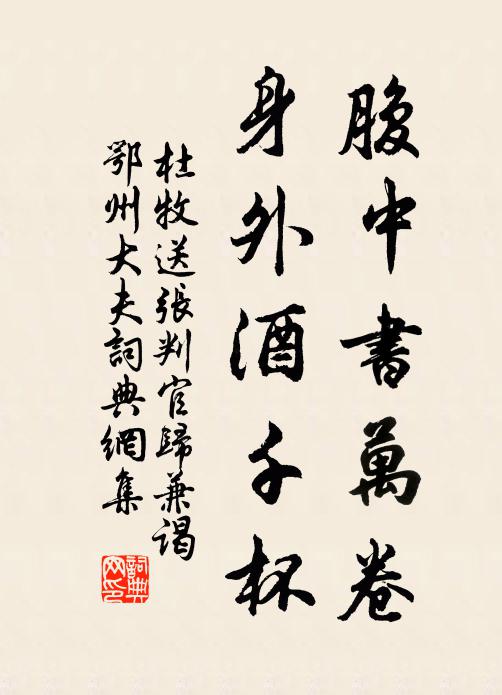 腹中書萬卷
身外酒千杯
杜牧送張判官歸兼謁
鄂州大夫詞典網集
詞典网印